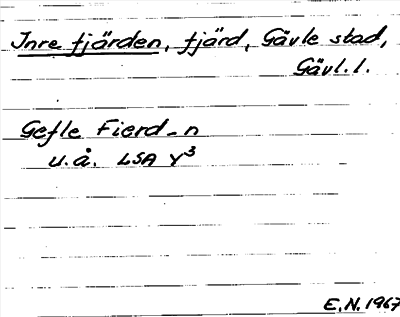 Inre fjärden, fjärd, Gävle stad,
Gävl.l.
Gefle Fierd-n
u.å. LSA Y3
E.N. 1967